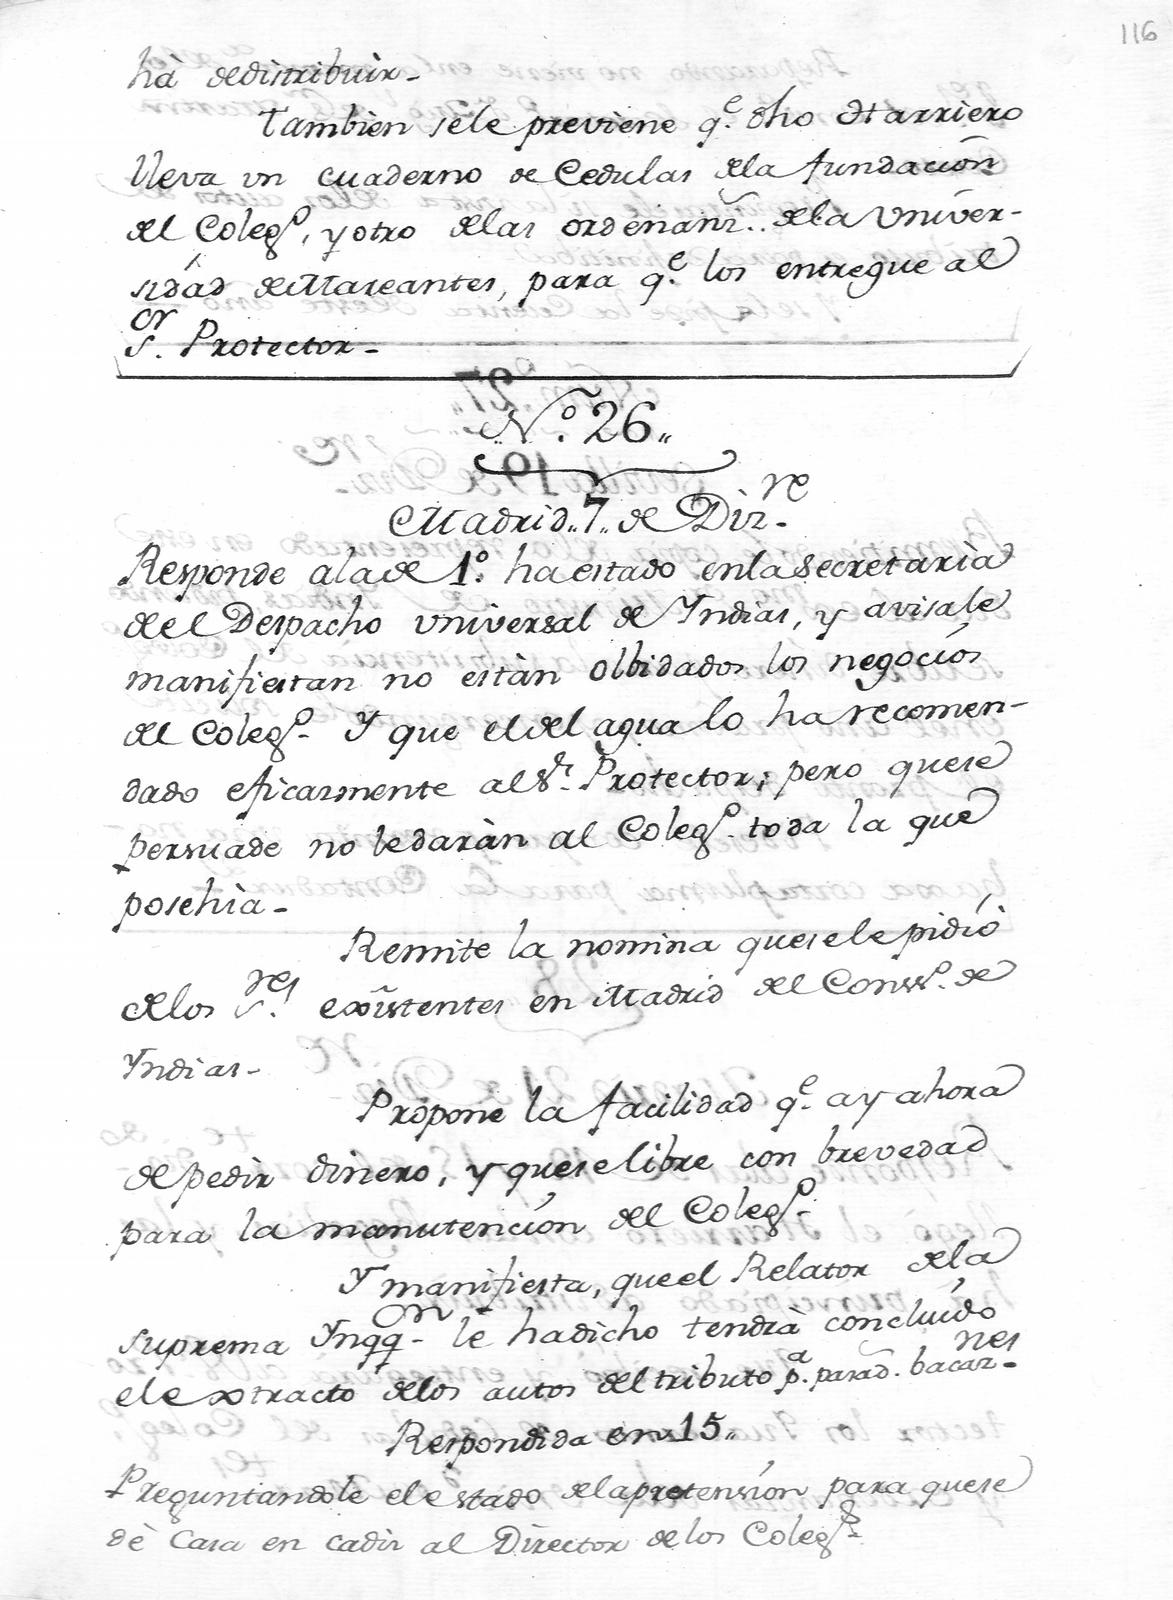 116
ha dedistribuir-
Tambien sele previene q.e dho Harriero
lleva un cuaderno de Cedulas dela fundación
del Coleg.o, y otro delas ordenanz.. dela Univer-
sidad deMareantes, para q.e los entregue al
S.or Protector-
N.o 26,,
Madrid,, 7,, de Diz.re
Responde alade 1.o ha estado enla Secretaria
del Despacho universal de Yndias, y avisale
manifiestan no estàn olbidados los negocios
del Coleg.o- Y que eldel agua lo ha recomen-
dado eficasmente al S.r Protector; pero quese
persuade no ledaràn al Coleg.o toda la que
posehia-
Remite la nomina quesele pidiò
delos S.res existentes en Madrid del Cons.o de
Yndias-
Propone la facilidad q.e ay ahora
de pedir dinero, y quese libre con brevedad
para la manutenciòn del Coleg.o-
Y manifiesta, queel Relator dela
Suprema Ynqq.on- le hadicho tendrà concluìdo
el extracto delos autos deltributo p.a parad. bacan.nes-
Respondida en 15,,
Preguntandole el estado dela pretensìon para quese
dè Casa en cadiz al Director de los Coleg.s-